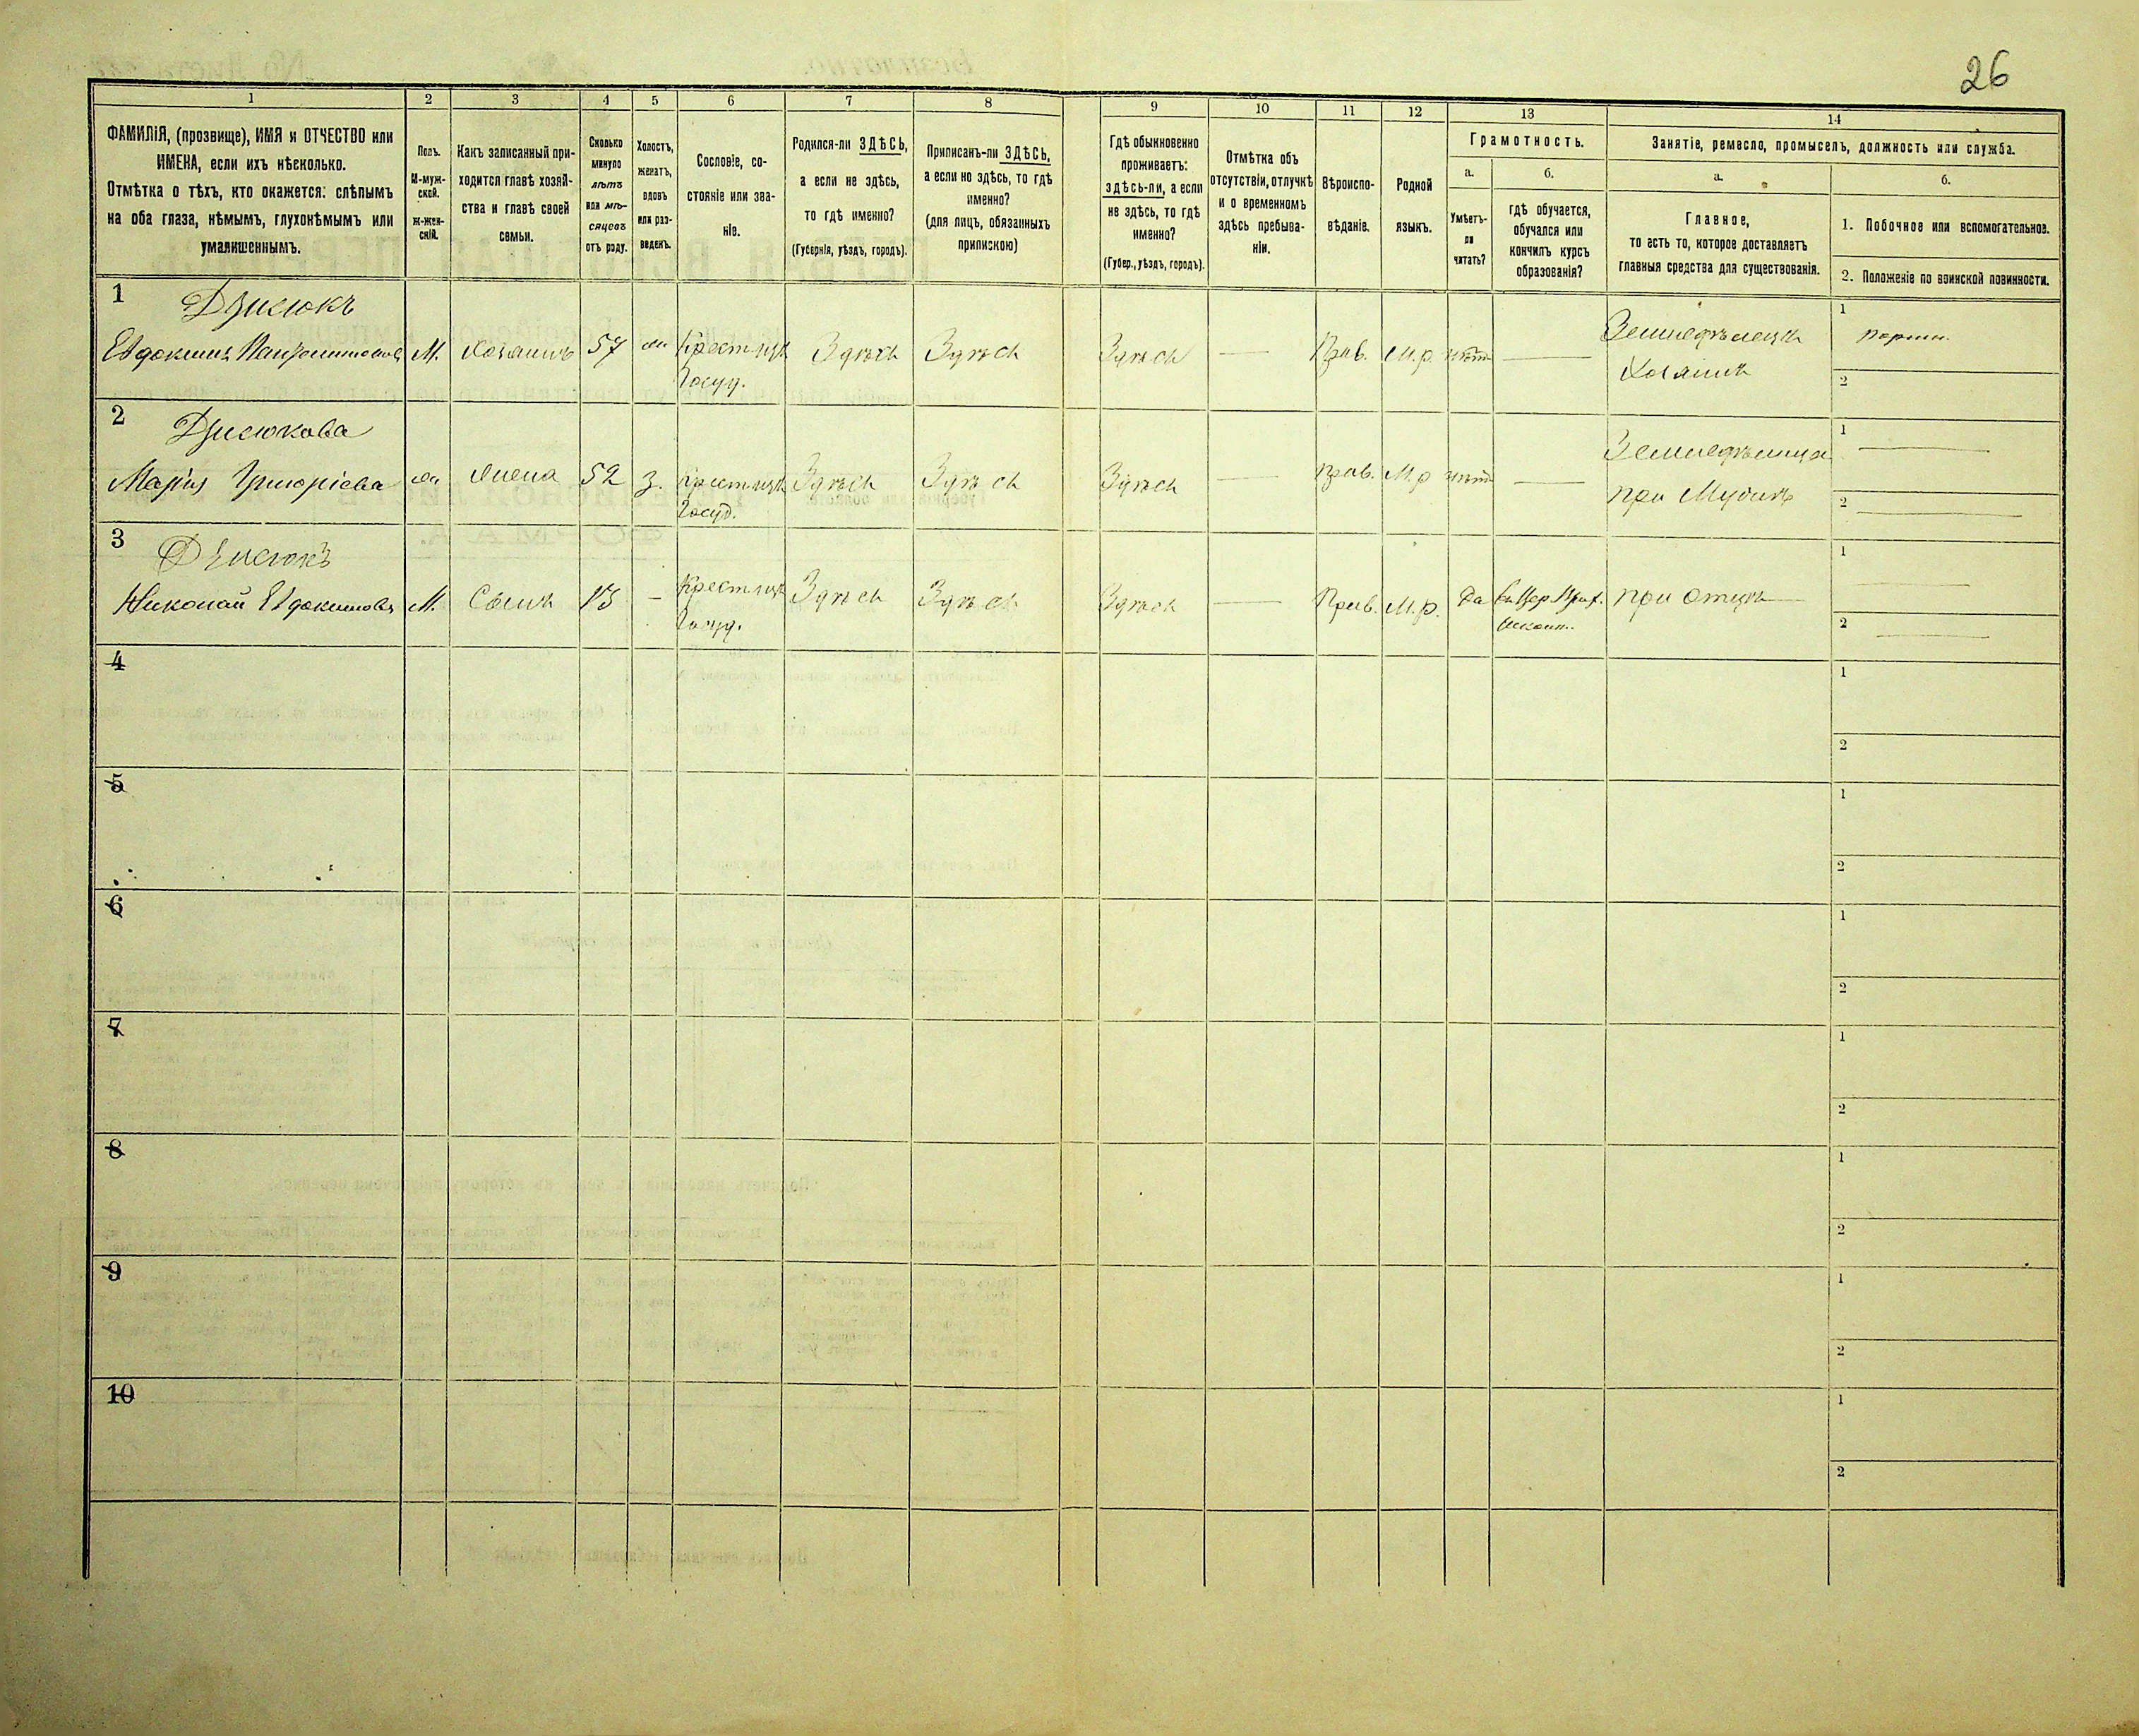 26
1 2 3 4 5 6 7 8 9 10 11 12 13 14
ФАМИЛІЯ, (прозвище), ИМЯ и ОТЧЕСТВО или
ИМЕНА, если ихъ нѣсколько.
Отмѣтка о тѣхъ, кто окажется: слѣпымъ
на оба глаза, нѣмымъ, глухонѣмымъ или
умалишеннымъ.
Полъ.
М-муж-
ской.
ж-жен-
скій.
Какъ записанный при-
ходится главѣ хозяй-
ства и главѣ своей
семьи.
Сколько
минуло
лѣтъ
или мѣ-
сяцевъ
отъ роду.
Холостъ,
женатъ,
вдовъ
или раз-
веденъ.
Сословіе, со-
стояніе или зва-
ніе.
Родился-ли ЗДѢСЬ,
а если не здѣсь,
то гдѣ именно?
(Губернія, уѣздъ, городъ).
Приписанъ-ли ЗДѢСЬ,
а если не здѣсь, то гдѣ
именно?
(для лицъ, обязанныхъ
припискою)
Гдѣ обыкновенно
проживаетъ:
здѣсь-ли, а если
не здѣсь, то гдѣ
именно?
(Губер., уѣздъ, городъ).
Отмѣтка объ
отсутствіи, отлучкѣ
и о временномъ
здѣсь пребыва-
ніи.
Вѣроиспо-
вѣданіе.
Родной
языкъ.
Грамотность.
а.
Умѣетъ-
ли
читать?
б.
гдѣ обучается,
обучался или
кончилъ курсъ
образованія?
Занятіе, ремесло, промыселъ, должность или служба.
а.
Главное,
то есть то, которое доставляетъ
главныя средства для существованія.
б.
1. Побочное или вспомогательное.
2. Положеніе по воинской повинности.
1 Дзисюкъ
Евдокимъ М. Хозяинъ 57 Крестьян Здѣсь Здѣсь Здѣсь — Прав. М.р. нѣтъ — Земледѣлецъ 1
Госуд. Хозяинъ 2
2 Дзисюкова
Марія Григоріева ж Жена 52 з. Крестьян Здѣсь Здѣсь Здѣсь — Прав. М.р нѣтъ — Земледѣлица 1 —
Госуд. при Мужѣ 2 —
3 Дзисюкъ
Николай Евдокимовъ М. Сынъ 15 — Крестьян Здѣсь Здѣсь Здѣсь — Прав. М.р. Да при отцѣ 1 —
Госуд. 2 —
4 1 2
5 1 2
6 1 2
7 1 2
8 1 2
9 1 2
10 1 2